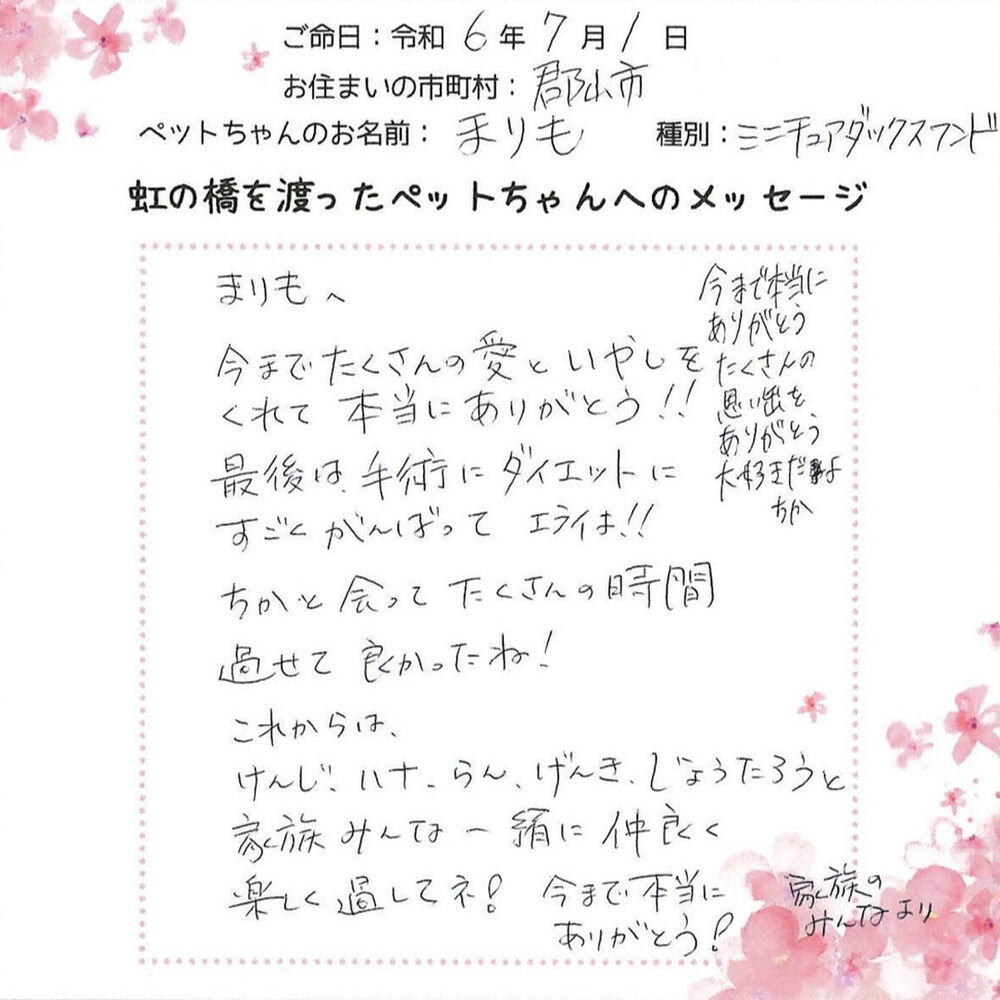 ご命日：令和 6 年 7 月 1 日
お住まいの市町村：郡山市
ペットちゃんのお名前：まりも 種別：ミニチュアダックスフンド
虹の橋を渡ったペットちゃんへのメッセージ
まりもへ
今までたくさんの愛といやしを
くれて 本当にありがとう!!
最後は、手術にダイエットに
すごくがんばって エライよ!!
ちかと会って たくさんの時間
過せて 良かったね!
これからは、
けんじ、ハナ、らん、げんき、じょうたろうと
家族みんな一緒に 仲良く
楽しく過してネ!
今まで本当に
ありがとう!
今まで本当に
ありがとう
たくさんの
思い出を、
ありがとう
大好きだよ
ちか
家族の
みんなより